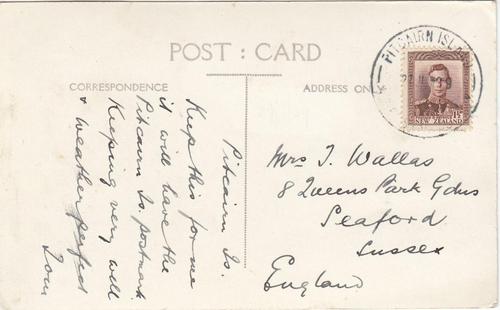 POST : CARD
CORRESPONDENCE
ADDRESS ONLY
Pitcairn Is.
Keep this for me
it will have the
Pitcairn Is. postmark
Keeping very well
& weather perfect
Tom
PITCAIRN ISLAND
1½
NEW ZEALAND
Mrs T. Wallas
8 Queens Park Gdns
Seaford
Sussex
England